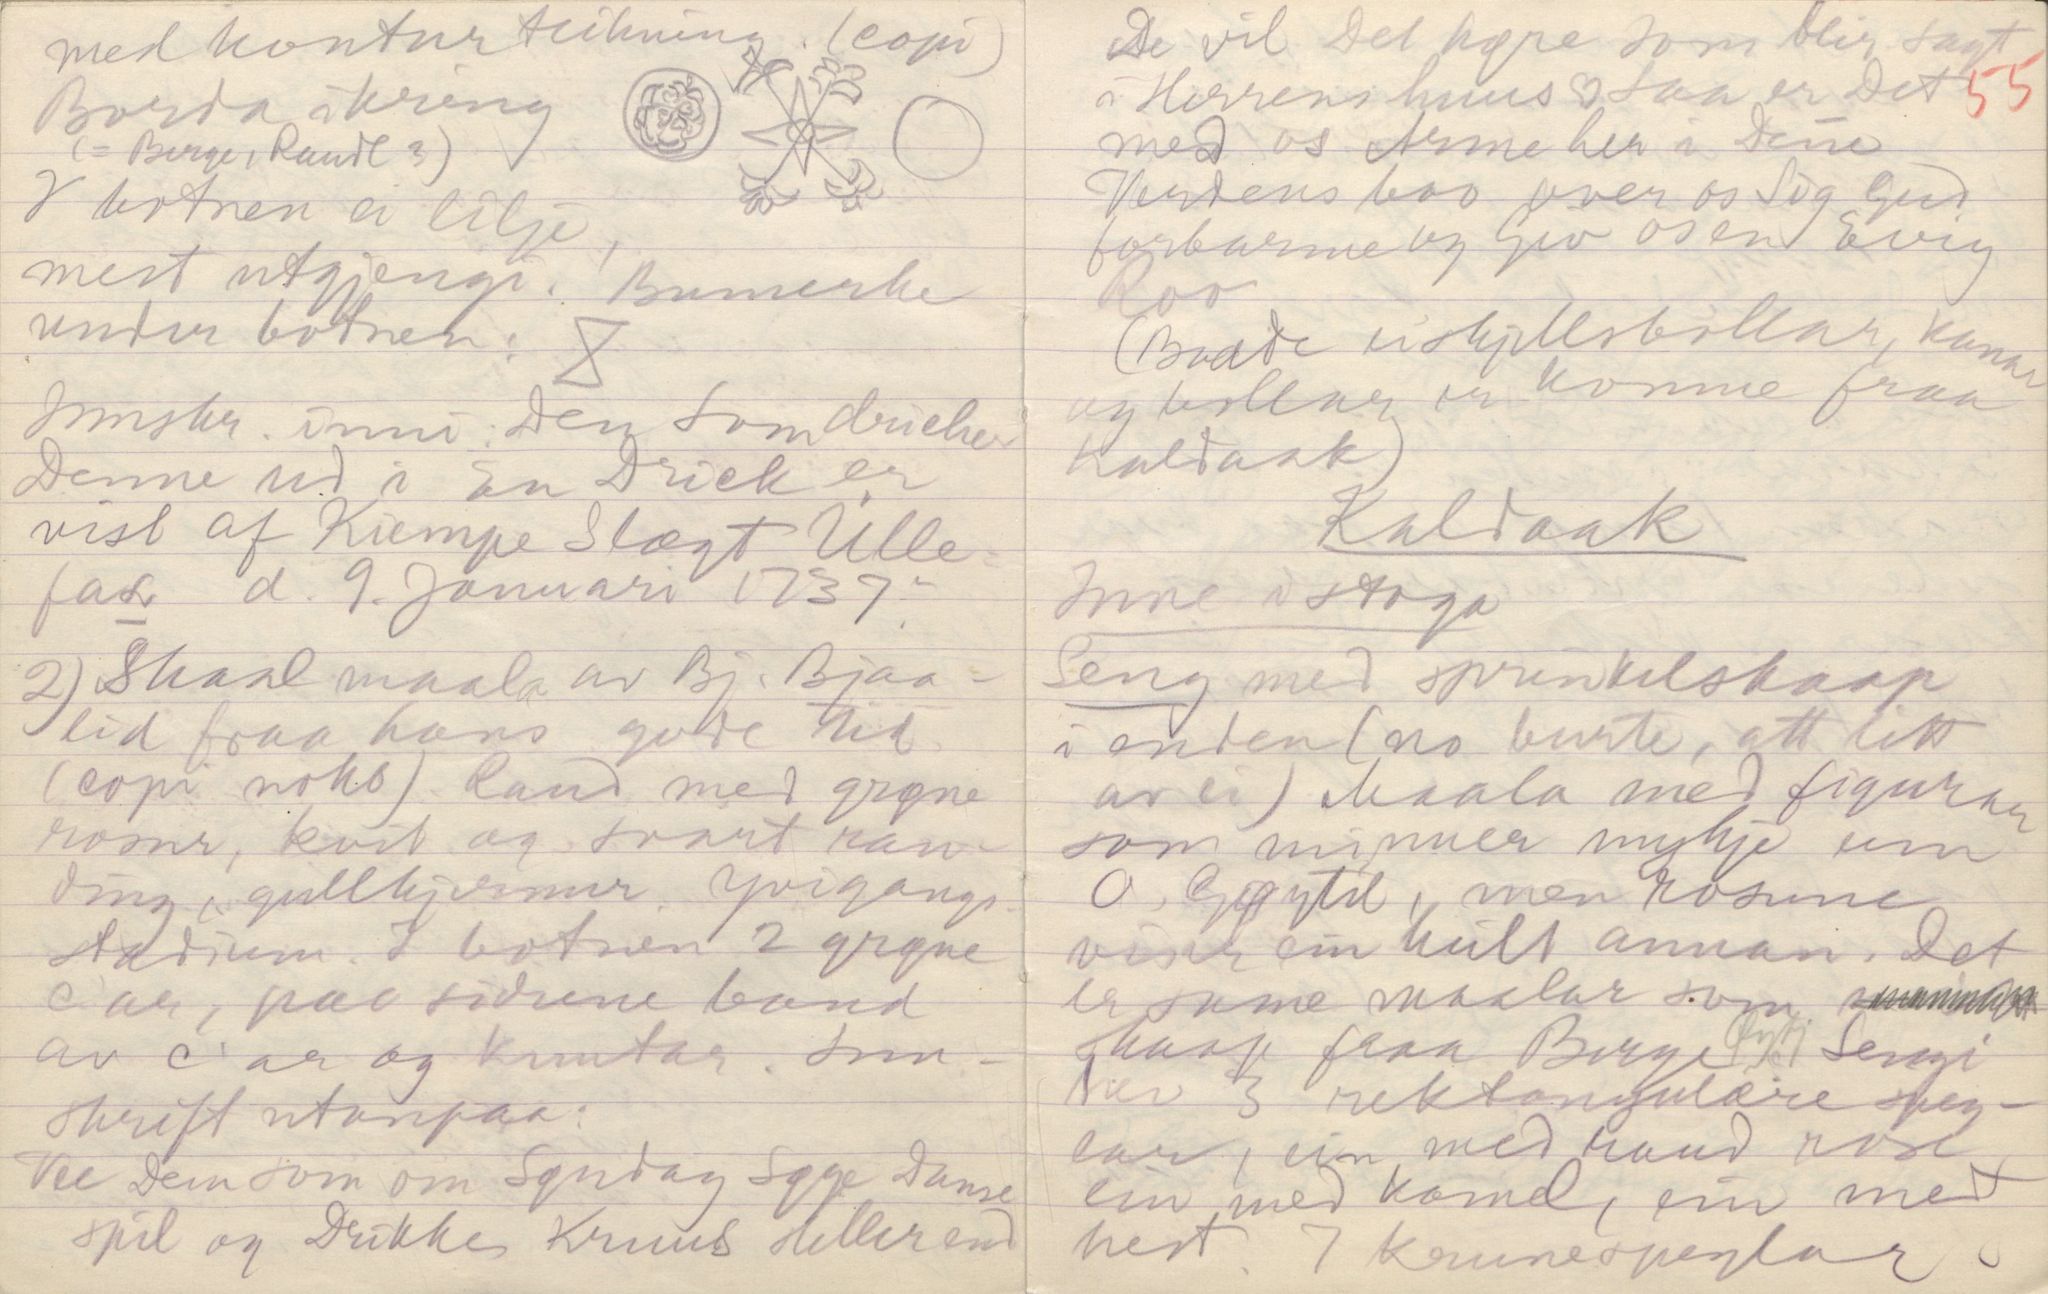 med konturteikning. (copi)
Borda ikring
(= Berge, Raudl 3)
I botnen ei lilje,
mest utgjengi. Bumerke
under botnen:
Innskr. inni: Den som dricker
Denne ud i En Drick er
vist af Kiempe Slægt Ulle-
fax d. 9. Januari 1737.
2) Skaal maala av Bj. Bjaa-
lid fraa hans gode tid
(copi noko) Rand med grøne
rosur, kvit og svart ran-
ding, gullkjernur. Yvigangs-
stadium. I botnen 2 grøne
C'ar, paa sidune band
av C'ar og kruntar. Inn-
skrift utanpaa:
Vee Dem som om Søndag Søge Danse
spil og Drikkes Kruus Heller end
De vil Det høre som blir sagt
i Herrens huus Saa er Det
55
med os Arme her i Dene
Verdens boo over os Sig Gud
forbarme og Giv os en Evig
Roo
(Baade eishjellsbollar, kanar
og bollar er komne fraa
Kaldaak)
Kaldaak
Inne i stoga
Seng med sprinkelskaap
i enden (no burte, att litt
av ei) Maala med figurar
som minner mykje um
O. Gjøytil, men rosune
viser ein heilt annan. Det
er same maalar som
skaap fraa Berge Sengi
hev 3 rektangulære speg-
lar, ein med raud rose
ein med kamel, ein med
hest. I krunespeglar